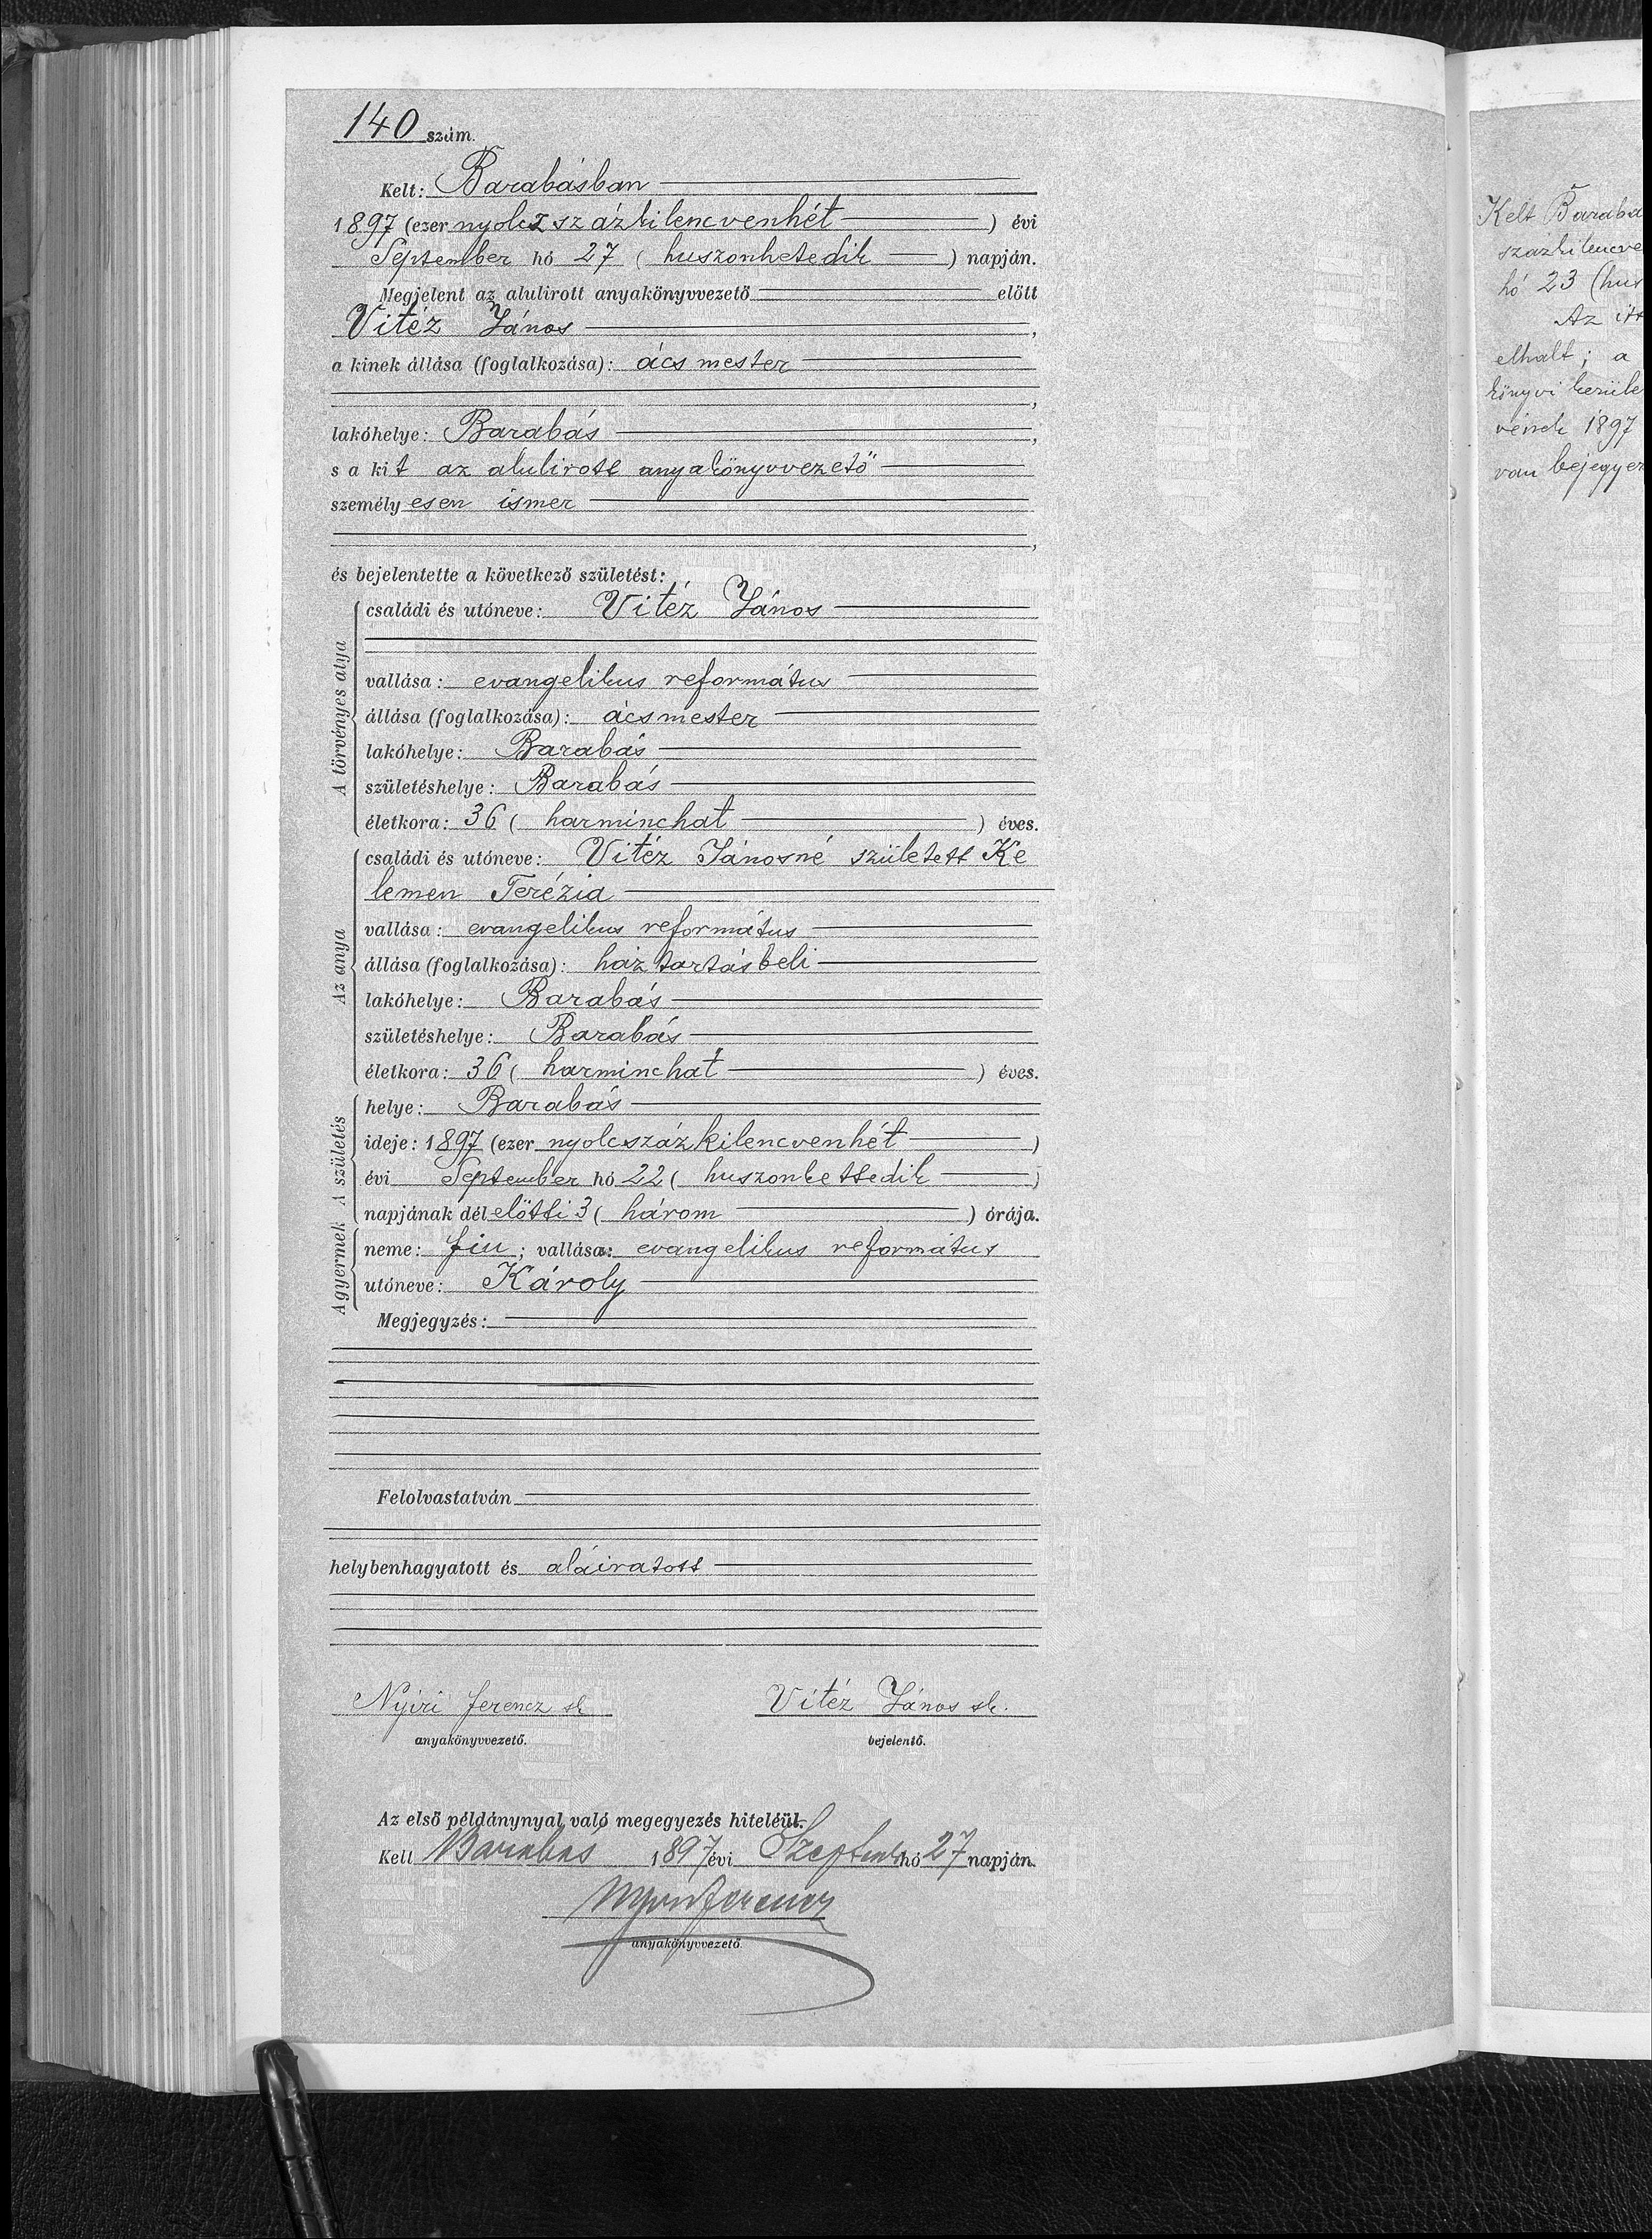 140 szám.
Kelt: Barabásban
1897 (ezer nyolczszázkilencvenhét ) évi
September hó 27 ( huszonhetedik ) napján.
Megjelent az alulirott anyakönyvvezető előtt
Vitéz János ,
a kinek állása (foglalkozása): ács mester
,
lakóhelye: Barabás ,
s a kit az alulirott anyakönyvvezető
személyesen ismer
,
és bejelentette a következő születést:
A törvényes atya
családi és utóneve: Vitéz János
vallása: evangelikus református
állása (foglalkozása): ácsmester
lakóhelye: Barabás
születéshelye: Barabás
életkora: 36 ( harminchat ) éves.
Az anya
családi és utóneve: Vitéz Jánosné született Ke
lemen Terézia
vallása: evangelikus református
állása (foglalkozása): háztartásbeli
lakóhelye: Barabás
születéshelye: Barabás
életkora: 36 ( harminchat ) éves.
A születés
helye: Barabás
ideje: 1897 (ezer nyolcszázkilencvenhét )
évi September hó 22 ( huszonkettedik )
napjának délelőtti 3 ( három ) órája.
A gyermek
neme: fiu ; vallása: evangelikus református
utóneve: Károly
Megjegyzés:
Felolvastatván
helybenhagyatott és aláiratott
Nyiri Ferencz sk Vitéz János sk.
anyakönyvvezető. bejelentő.
Az első példánynyal való megegyezés hiteléül.
Kelt Barabás 1897 évi Szeptemb hó 27 napján.
Nyiri Ferencz
anyakönyvvezető
Kelt Baraba
százkilencve
hó 23 (hus
Az itt
elhalt; a
könyvi kerüle
vének 1897
van bejegyez